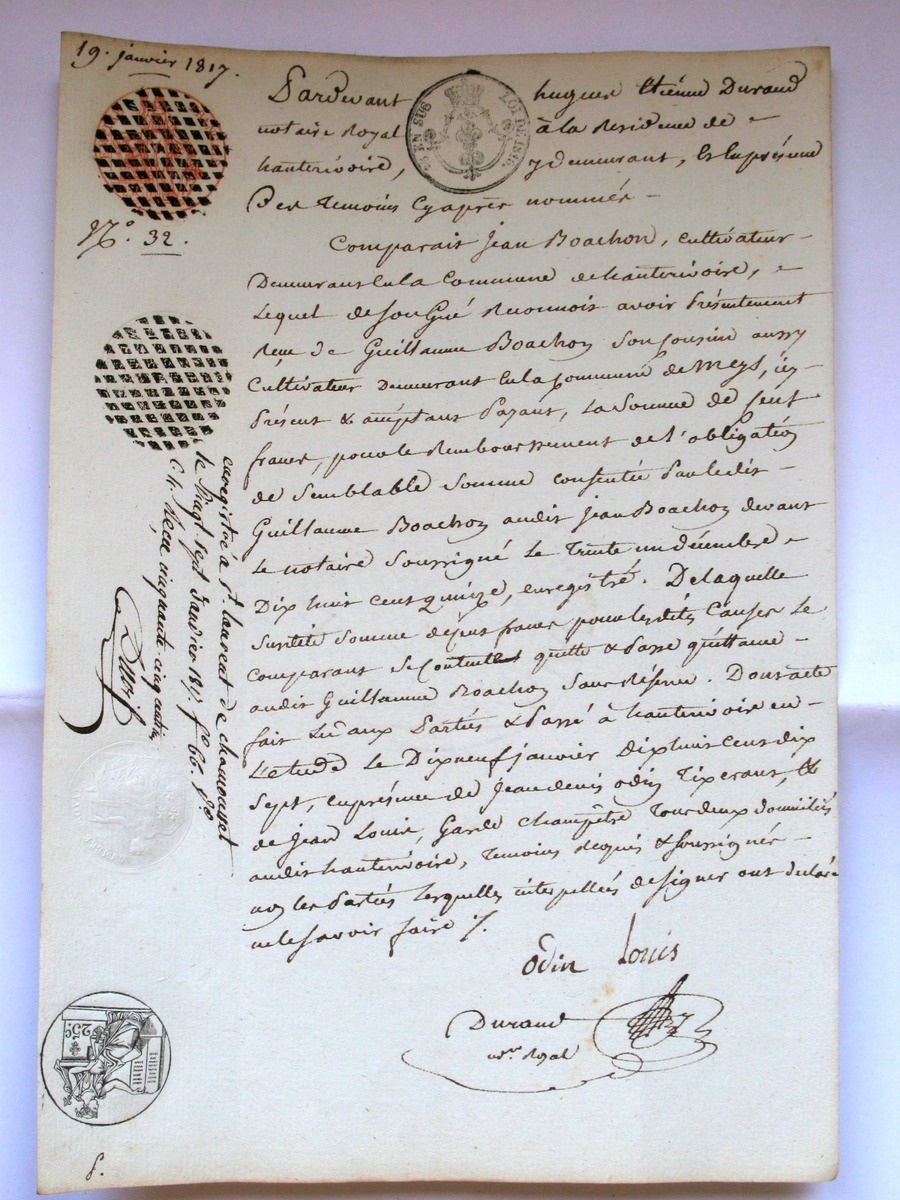 19. janvier 1817.
Pardevant hugues Etiénne Durand
notaire Royal à la Residence de
hauterivoire, y demeurant, & en présence
Des temoins Cyaprès nommés
N.° 32.
EN SUS LOI DE 1816.
Comparait Jean Boachon, cultivateur
Demeurant en la Commune de hauterivoire,
Lequel de son Gré Reconnois avoir Présentement
Reçu de Guillaume Boachon son Cousin aussy
Cultivateur Demeurant en la Commune de Meys, icy
Présent & acceptant Payant, La Somme de Cent
francs, pour le Remboursement de l'obligation
de Semblable Somme consentie Par le dit
Guillaume Boachon audit Jean Boachon devant
Le notaire Soussigné Le Trente un décembre
Dix huit Cent quinze, enregistré. De laquelle
Susdite Somme de Cent francs pour les dites Causes Le
comparant Se Contente quitte & Passe quittance
audit Guillaume Boachon Sans Réserve. Dont acte
fait Lu aux Parties & Passé à hauterivoire en
L'etude Le Dix neuf janvier Dix huit Cent dix
Sept, en présence de Jean denis odin Tixerant, &
de Jean Louis, Garde Champêtre Tous deux domiciliés
audit hauterivoire, Temoins Requis & Soussignés
non les Parties lesquelles interpellées de Signer ont déclaré
ne le Savoir faire ./.
odin Louis
Durand
not.re Royal
enregistré à S.t laurent de chamousset
le Vingt Sept Janvier 1817 f.° 66.
Reçu cinquante cinq centimes
25.c